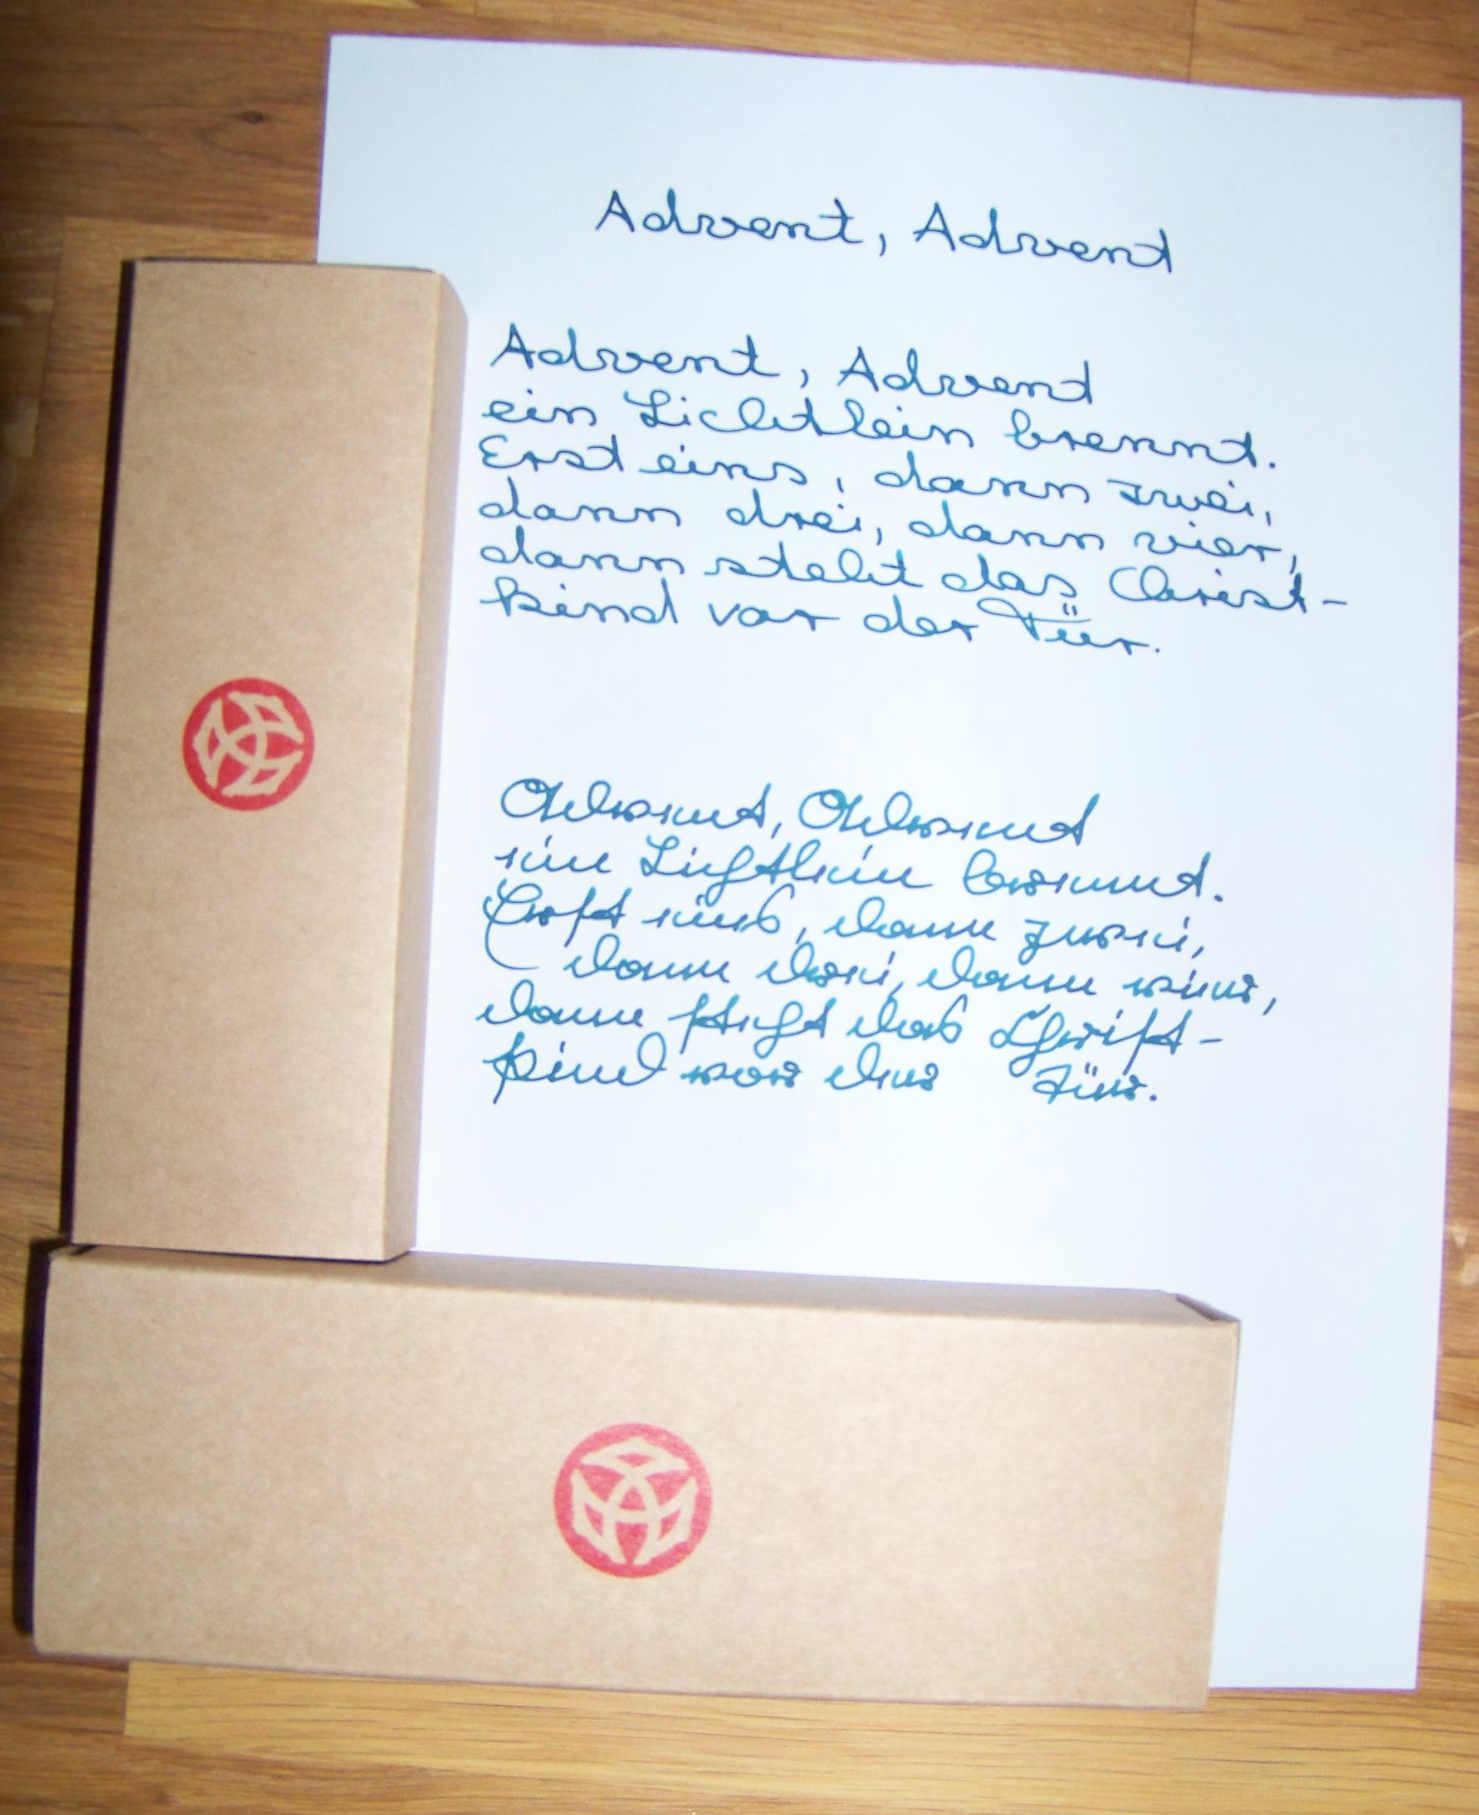 Advent, Advent
Advent, Advent
ein Lichtlein brennt.
Erst eins, dann zwei,
dann drei, dann vier,
dann steht das Christ-
kind vor der Tür.
Advent, Advent
ein Lichtlein brennt.
Erst eins, dann zwei,
dann drei, dann vier,
dann steht das Christ-
kind vor der Tür.